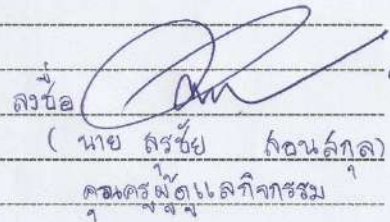 ลงชื่อ
( นาย สุรชัย สอนสกุล)
คุณครูผู้ดูแลกิจกรรม